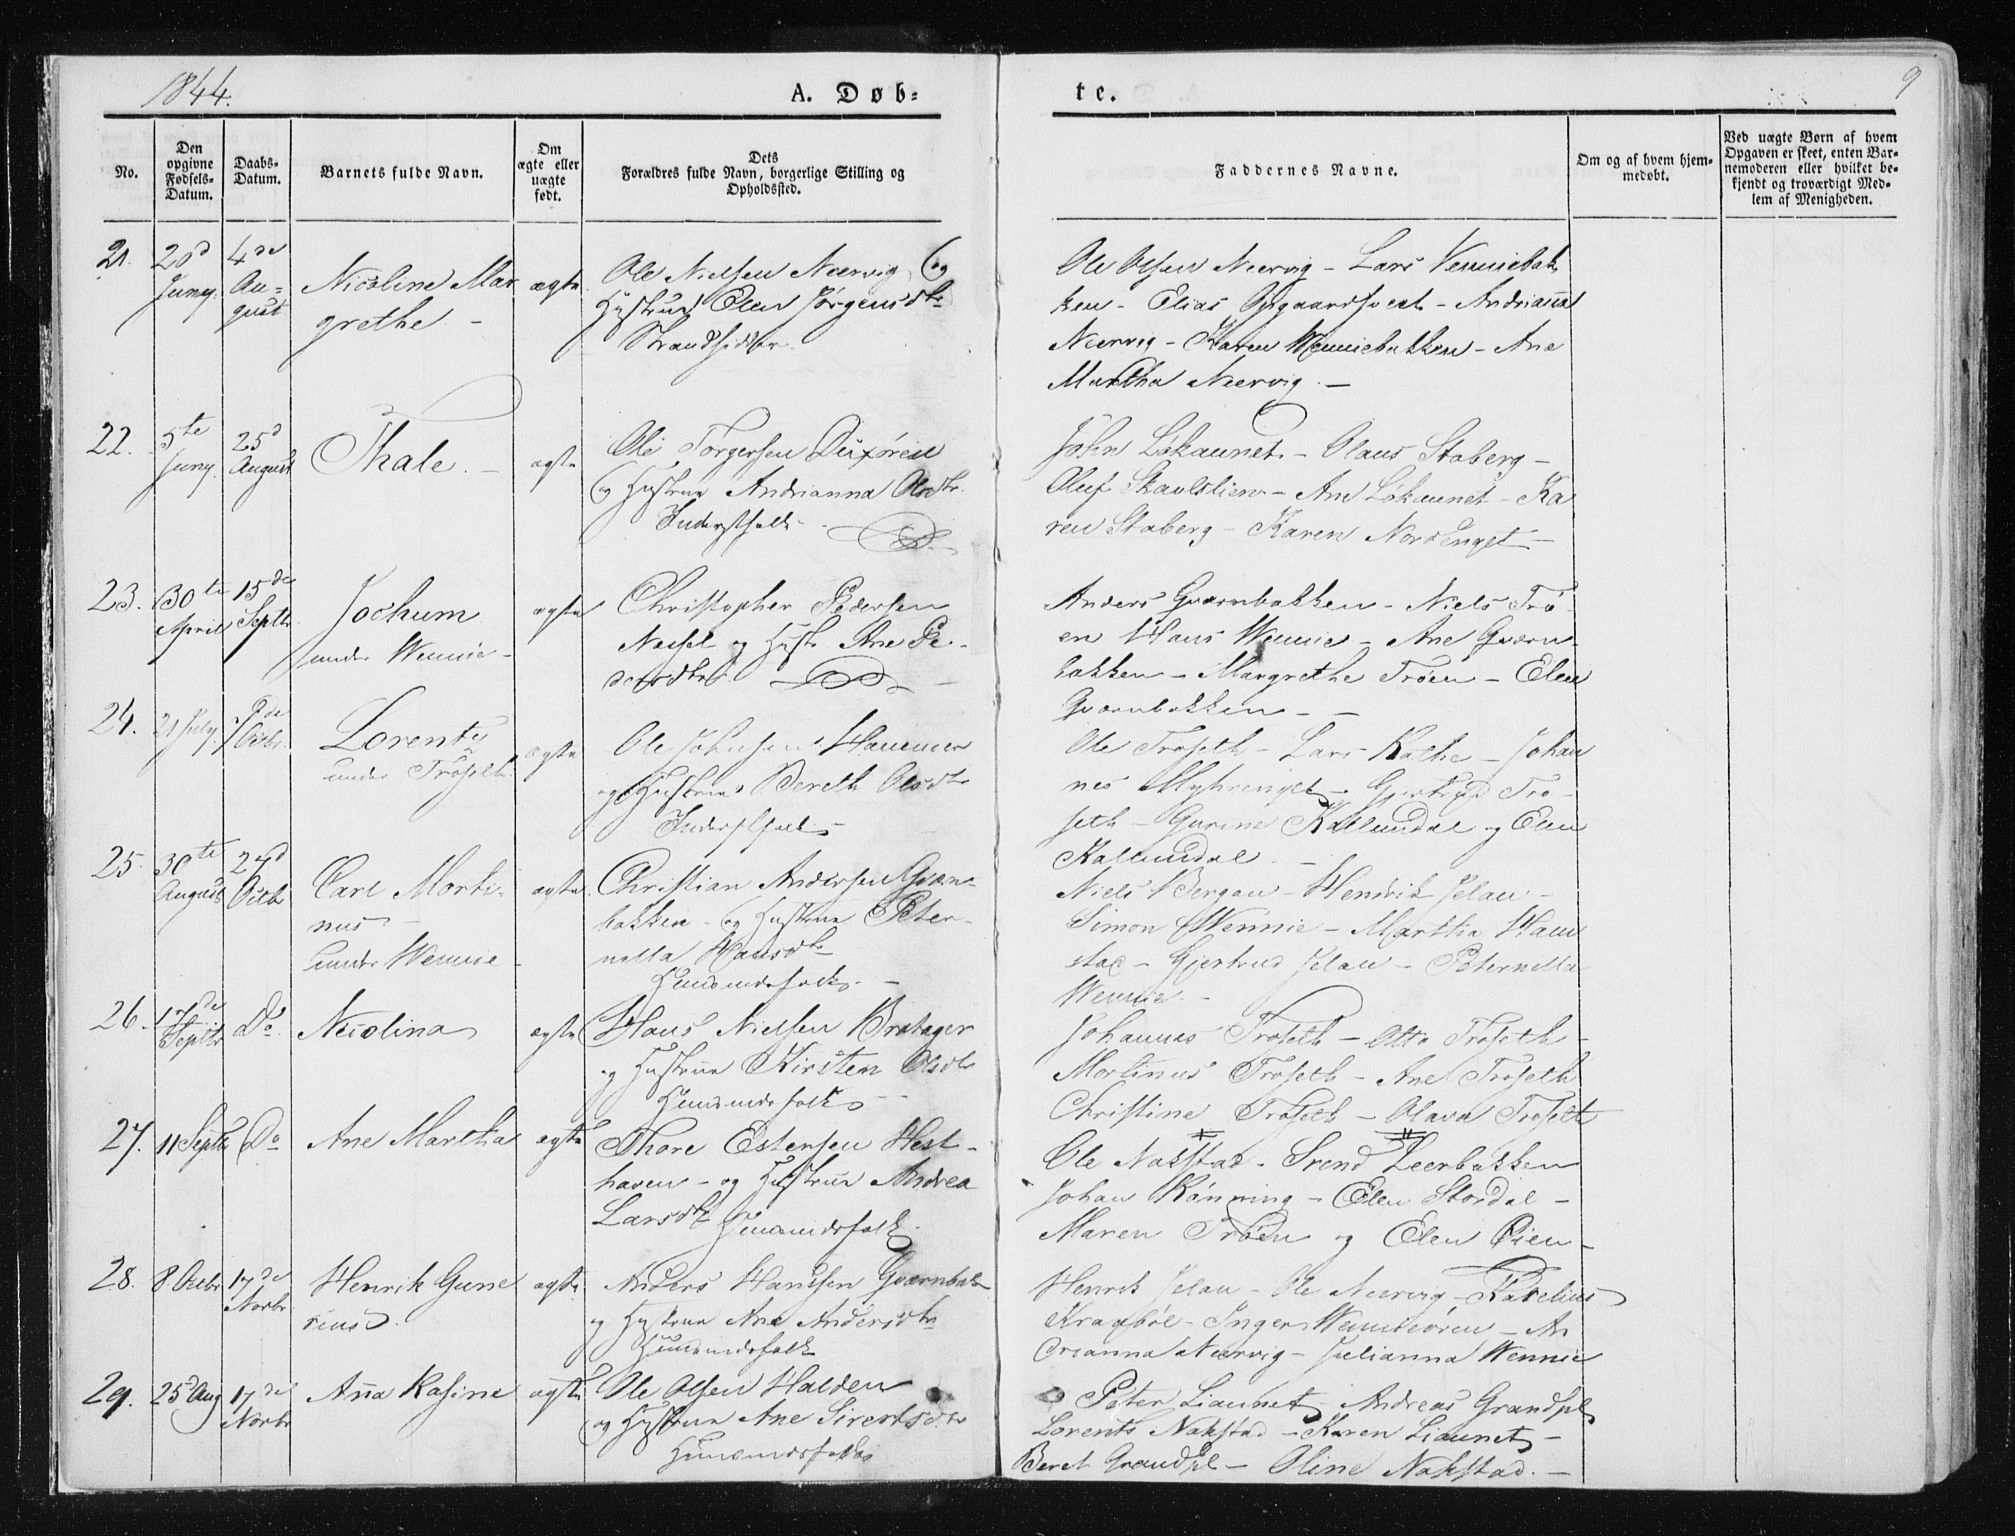 1844.
A. Døb=
te.
9
No.
Den
opgivne
Fødsels-
Datum.
Daabs-
Datum.
Barnets fulde Navn.
Om
ægte eller
uægte
født.
Dets
Forældres fulde Navn, borgerlige Stilling og
Opholdssted.
Faddernes Navne.
Om og af hvem hjem-
medøbt.
Ved uægte Børn af hvem
Opgaven er skeet, enten Bar-
nemoderen eller hvilket be-
kjendt og troværdigt Med-
lem af Menigheden.
21.
20d
Juny
4de
Au=
gust
Nicoline Mar
grethe –
ægte
Ole Nielsen Neervig og
Hustrue Elen Jørgensdtr
Strandsidder
Ole Olsen Neervig – Lars Wenniebak
ken – Elias Opgaardhvedt – Andrianna
Neervig – Karen Wenniebakken – Ane
Martha Neervig –
22.
5te
Juny
25d
August
Thale. –
ægte
Ole Torgersen
og Hustrue Andrianna Olsdtr.
Inderstfolk
John Løkaunet – Olaus Staberg –
Oluf Skavlslien – Ane Løkaunet – Ka
ren Staberg – Karen Nordenget –
23.
30te
April
15de
Septbr
Jochum
under Wennie –
ægte
Christopher Pedersen
og Hustr Ane Pe-
dersdtr.
Anders Qværnbakken – Niels Trø
en Hans Wennie – Ane Qværn
bakken – Margrethe Trøen – Elen
Qværnbakken –
24.
21 July
Octbr.
Lorents
under Troseth
ægte
Ole Johnsen Hammer
og Hustrue Bereth Olsdtr
Inderstfolk
Ole Troseth – Lars Kothe – Johan
nes Myhrenget – Gjertrud Tro-
seth – Gurine Kallundal og Elen
Kallundal –
25.
30te
August
27d
Octbr
Carl Morti-
nus
under Wennie –
ægte
Christian Andersen Qværn-
bakken – og Hustrue Peter-
nella Hansdtr
Huusmandsfolk –
Niels Bergan – Hendrik Jelan –
Simon Wennie – Martha Ham
stad – Gjertrud Jelan – Peternella
Wennie –
26.
17de
Septbr
Do
Nicolina
ægte
Hans Nielsen Bratager
og Hustrue Kirsten Olsdtr
Huusmandsfolk
Johannes Troseth – Otto Troseth –
Mortinus Troseth – Ane Troseth
Christine Troseth – Olava Troseth
27.
11 Septbr
Do
Ane Martha
ægte
Thore Estensen Hest-
haven – og Hustrue Andrea
Larsdtr Huusmandsfolk
Ole Nakstad – Svend Leerbakken
Johan Rønning – Elen Stordal –
Maren Trøen og Elen Lien –
28.
8 Octbr
17de
Novbr
Henrik Gune
rius.
ægte
Anders Hansen Qværnbak
og Hustrue Ane Andersdtr
Huusmandsfolk
Henrik Jelan – Ole Neervig –
Kragbøl – Inger Wennieøren – An
drianna Neervig – Julianna Wennie
29.
25d Aug
17de
Novbr
Aña Rasine
ægte
Ole Olsen Halden
og Hustrue Ane Sivertsdtr
Huusmandsfolk
Peter Liaunet, Andreas Grandpl
Lorents Nakstad – Karen Liaunet –
Beret Grandpl – Oline Nakstad. –